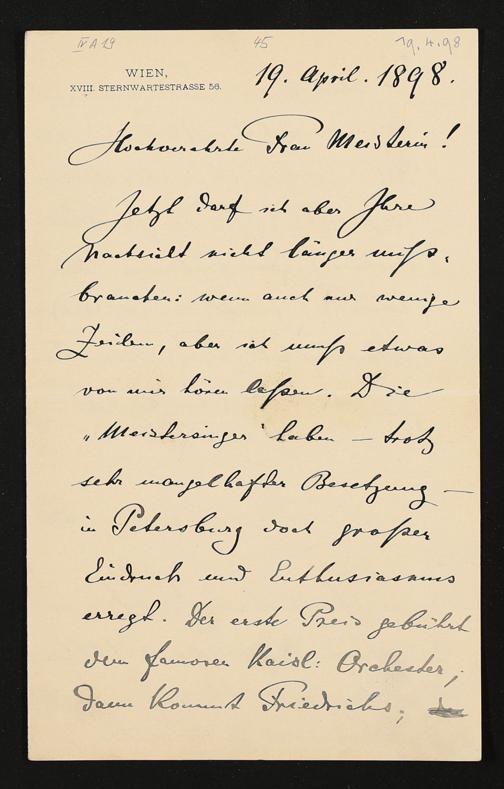 IV A 19
45
19.4.98
WIEN,
XVIII. STERNWARTESTRASSE 56.
19. April. 1898.
Hochverehrte Frau Meisterin!
Jetzt darf ich aber Ihre
Nachsicht nicht länger miß-
brauchen: wenn auch nur wenige
Zeilen, aber ich muß etwas
von mir hören laßen. Die
„Meistersinger" haben — trotz
sehr mangelhafter Besetzung —
in Petersburg doch großen
Eindruck und Enthusiasmus
erregt. Der erste Preis gebührt
dem famosen Kaisl: Orchester;
dann kommt Friedrichs;